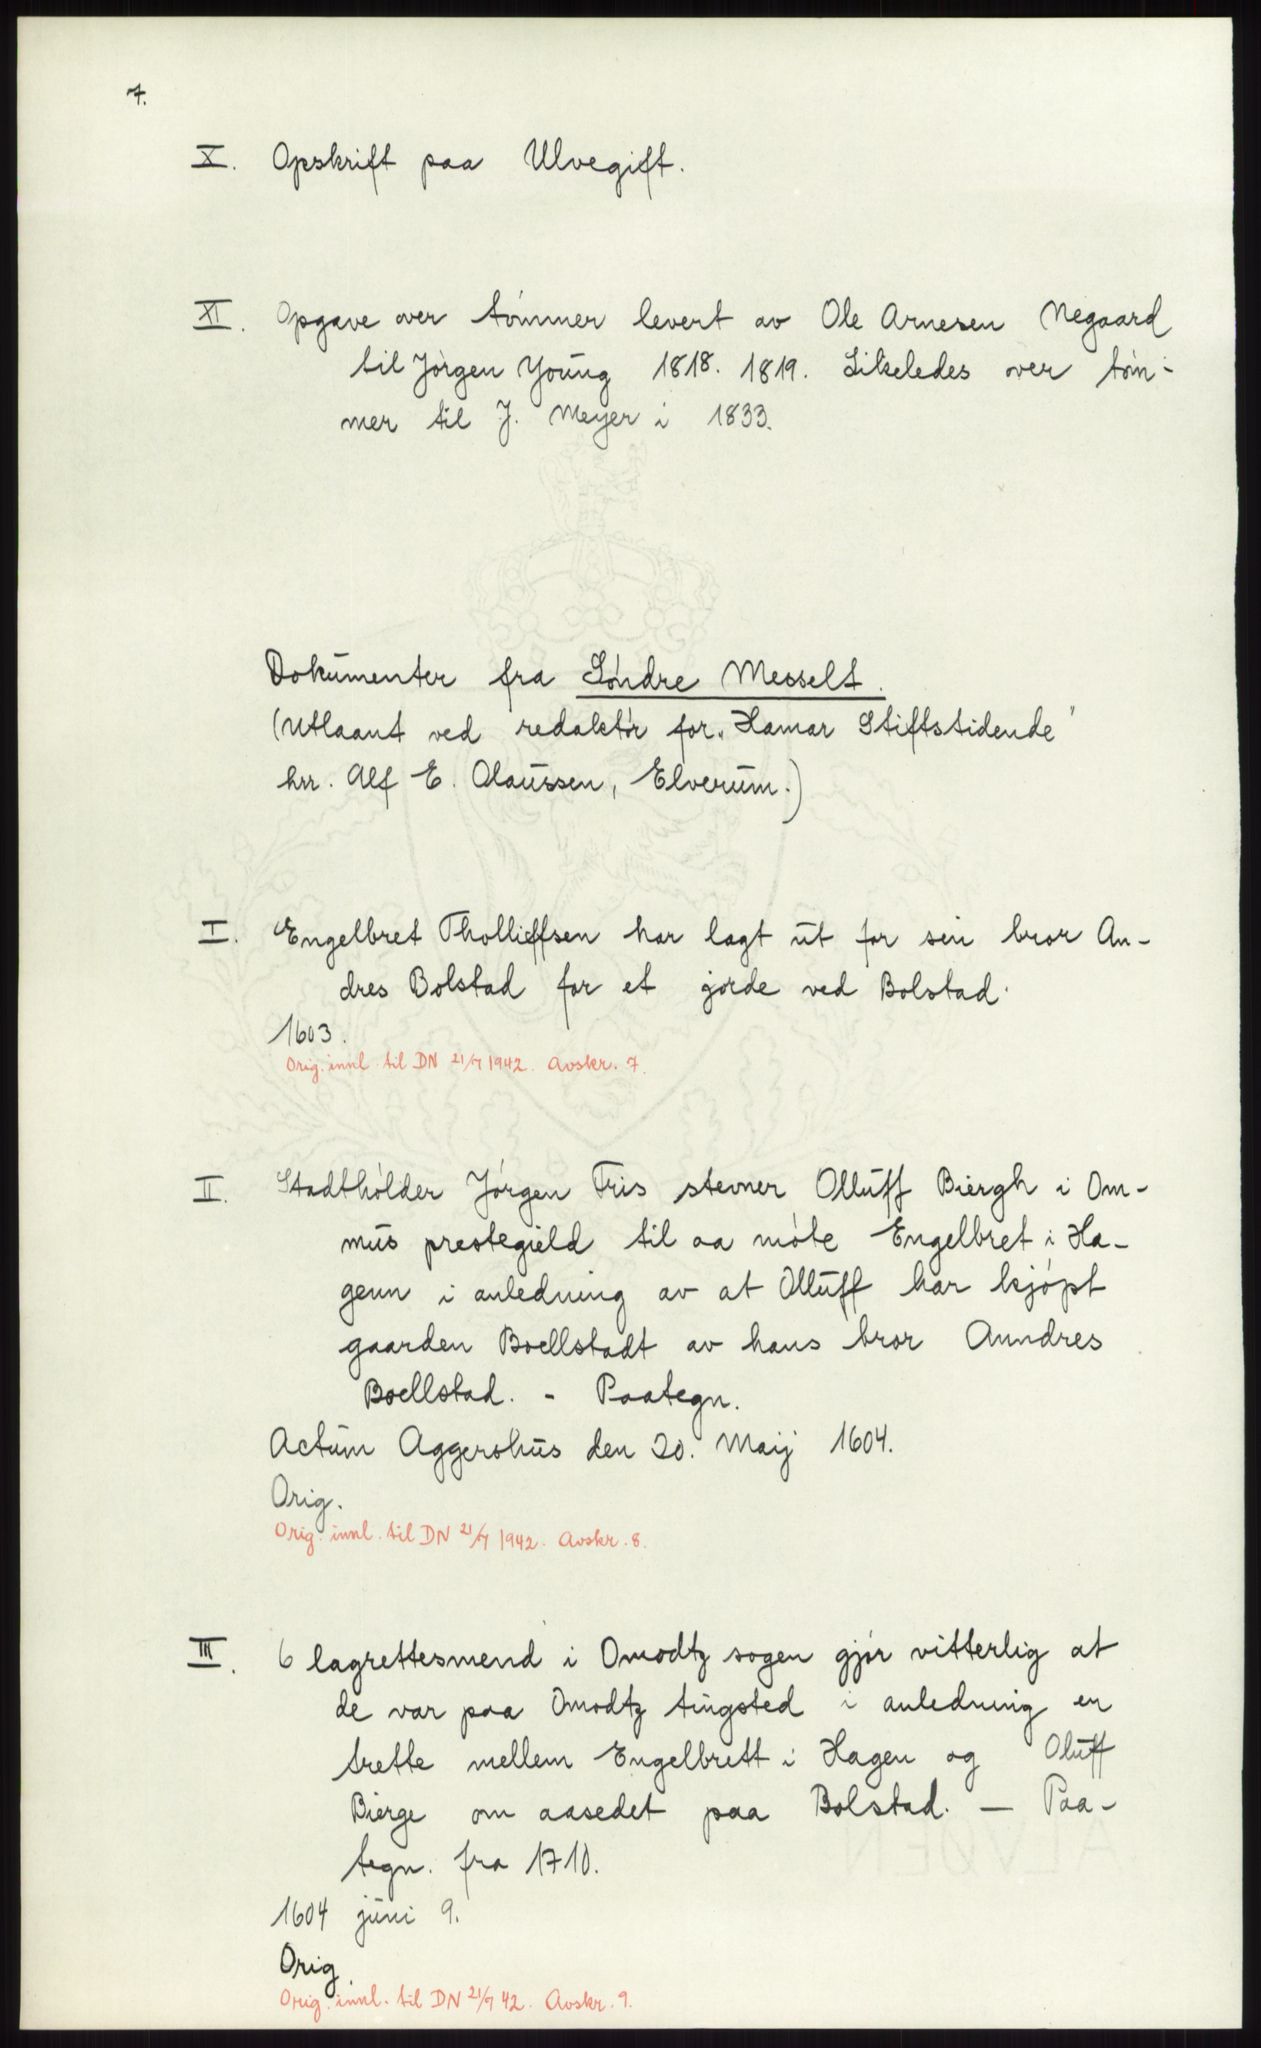 7.
X. Opskrift paa Ulvegift.
XI. Opgave over tømmer levert av Ole Arnesen Negaard
til Jørgen Young 1818. 1819. Likeledes over tøm-
mer til J. Meyer i 1833.
Dokumenter fra Søndre Messelt.
(Utlaant ved redaktør for „Hamar Stiftstidende"
hrr. Alf E. Olaussen, Elverum.)
I. Engelbret Thollieffsen har lagt ut for sin bror An-
dres Bolstad for et jorde ved Bolstad.
1603.
Orig. innl. til DN 21/7 1942. Avskr. 7.
II. Stadthólder Jórgen Friis stevner Olluff Biergh i Om-
mus prestegield til aa møte Engelbret i Ha-
genn i anledning av at Olluff har kjøpt
gaarden Boellstadt av hans bror Anndres
Boellstad. - Paategn.
Actum Aggershus den 20. Maij 1604.
Orig.
Orig. innl. til DN 21/7 1942. Avskr. 8.
III. 6 lagrettesmend i Omodtz sogen gjør vitterlig at
de var paa Omodtz tingsted i anledning en
trette mellem Engelbrett i Hagen og Oluff
Bierge om aasedet paa Bolstad. — Paa-
tegn. fra 1710.
1604 juni 9.
Orig.
Orig. innl. til DN 21/7 42. Avskr. 9.
ALVØEN